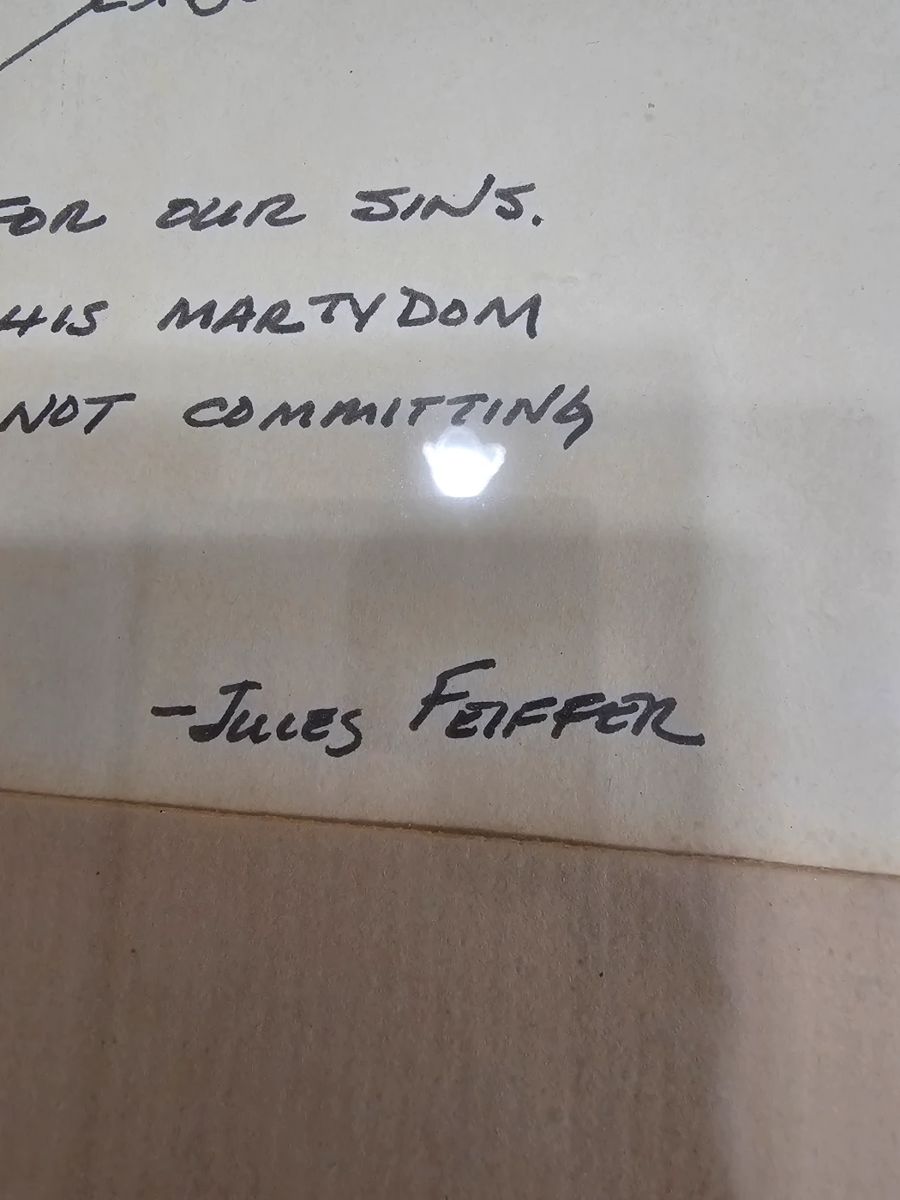 FOR OUR SINS.
HIS MARTYDOM
NOT COMMITTING
-JULES FEIFFER